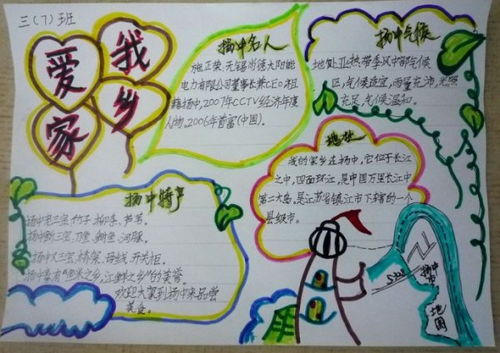 三（7）班
我爱家乡
扬中名人
施正荣，无锡尚德太阳能
电力有限公司董事长兼CEO祖
籍扬中，2007年CCTV经济年度
人物，2006年首富（中国）。
扬中气候
地处亚热带季风中部气候
区，气候适宜，雨量充沛，光照
充足，气候温和。
地址
我的家乡在扬中，它位于长江
之中，四面环江，是中国万里长江中
第二大岛，是江苏省镇江市下辖的一个
县级市。
扬中特产
扬中宅三宝，竹子、柳条、芦苇。
扬中鲜三宝，刀鱼、鲥鱼、河豚。
扬中大三宝，桥架、母线、开关柜。
欢迎大家到扬中来品尝
美食。
扬中市
地图